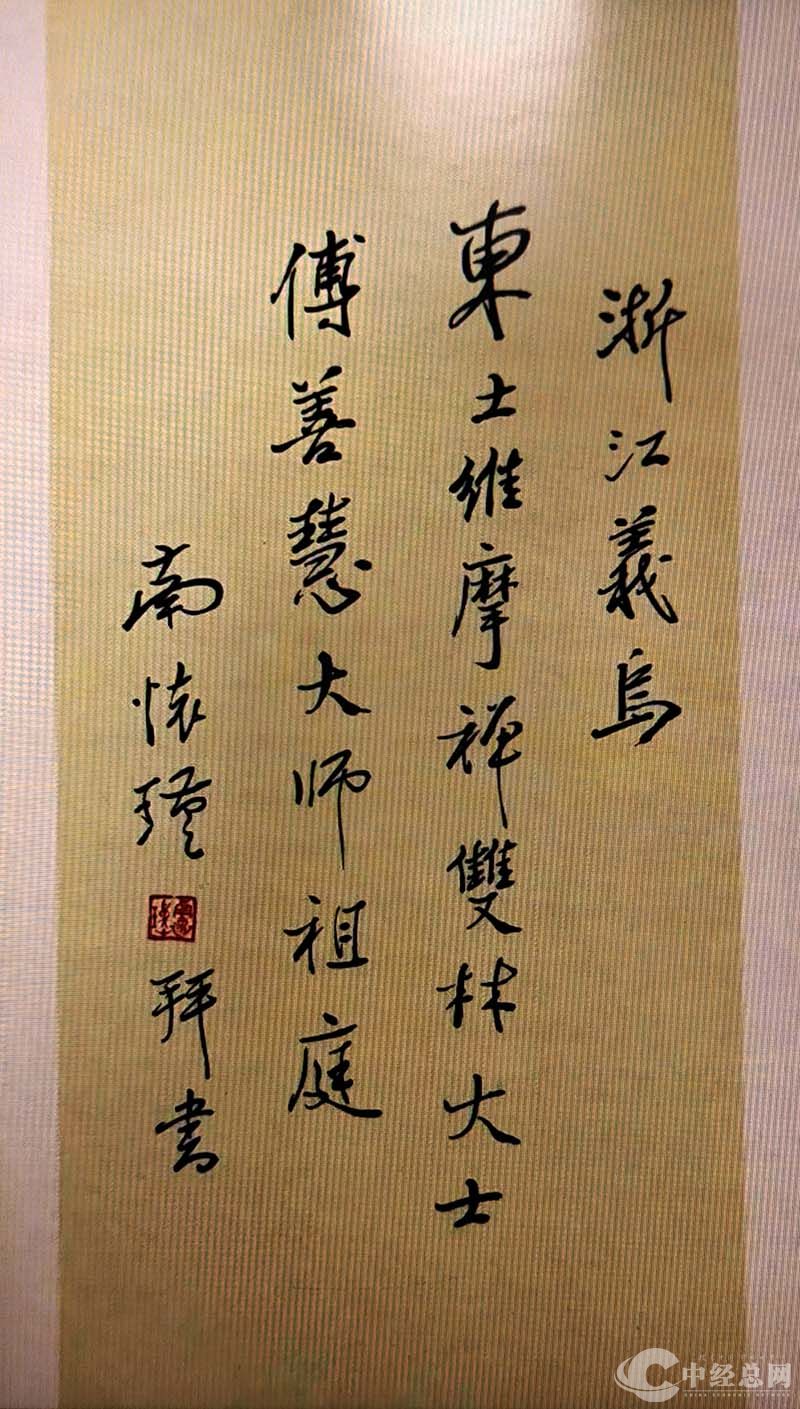 浙江義烏
東土維摩禅雙林大士
傅善慧大师祖庭
南怀瑾 拜书
中经总网
CHINA ECONOMIC NETWORK